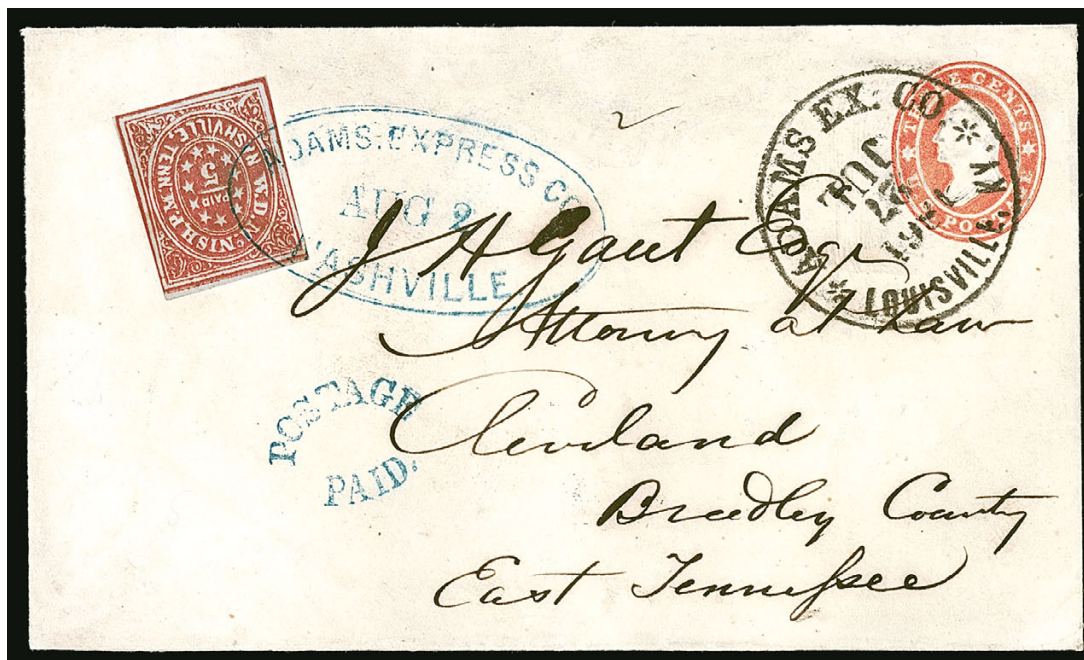 W.D. McNISH.P.M. NASHVILLE.TENN.
5
PAID
ADAMS.EXPRESS CO
AUG 2
NASHVILLE
ADAMS EX. CO.
JUL
1861
LOUISVILLE, KY.
THREE CENTS
U.S. POSTAGE
J H Gaut Esqr
Attorney at Law
POSTAGE
PAID.
Cleveland
Bradley County
East Tennessee